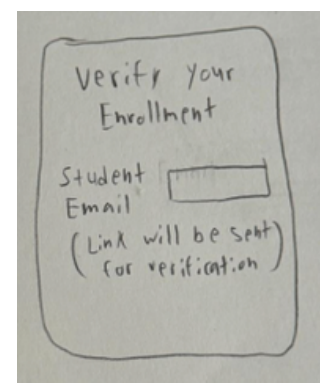 Verify Your
Enrollment
Student
Email
(Link will be sent
for verification)